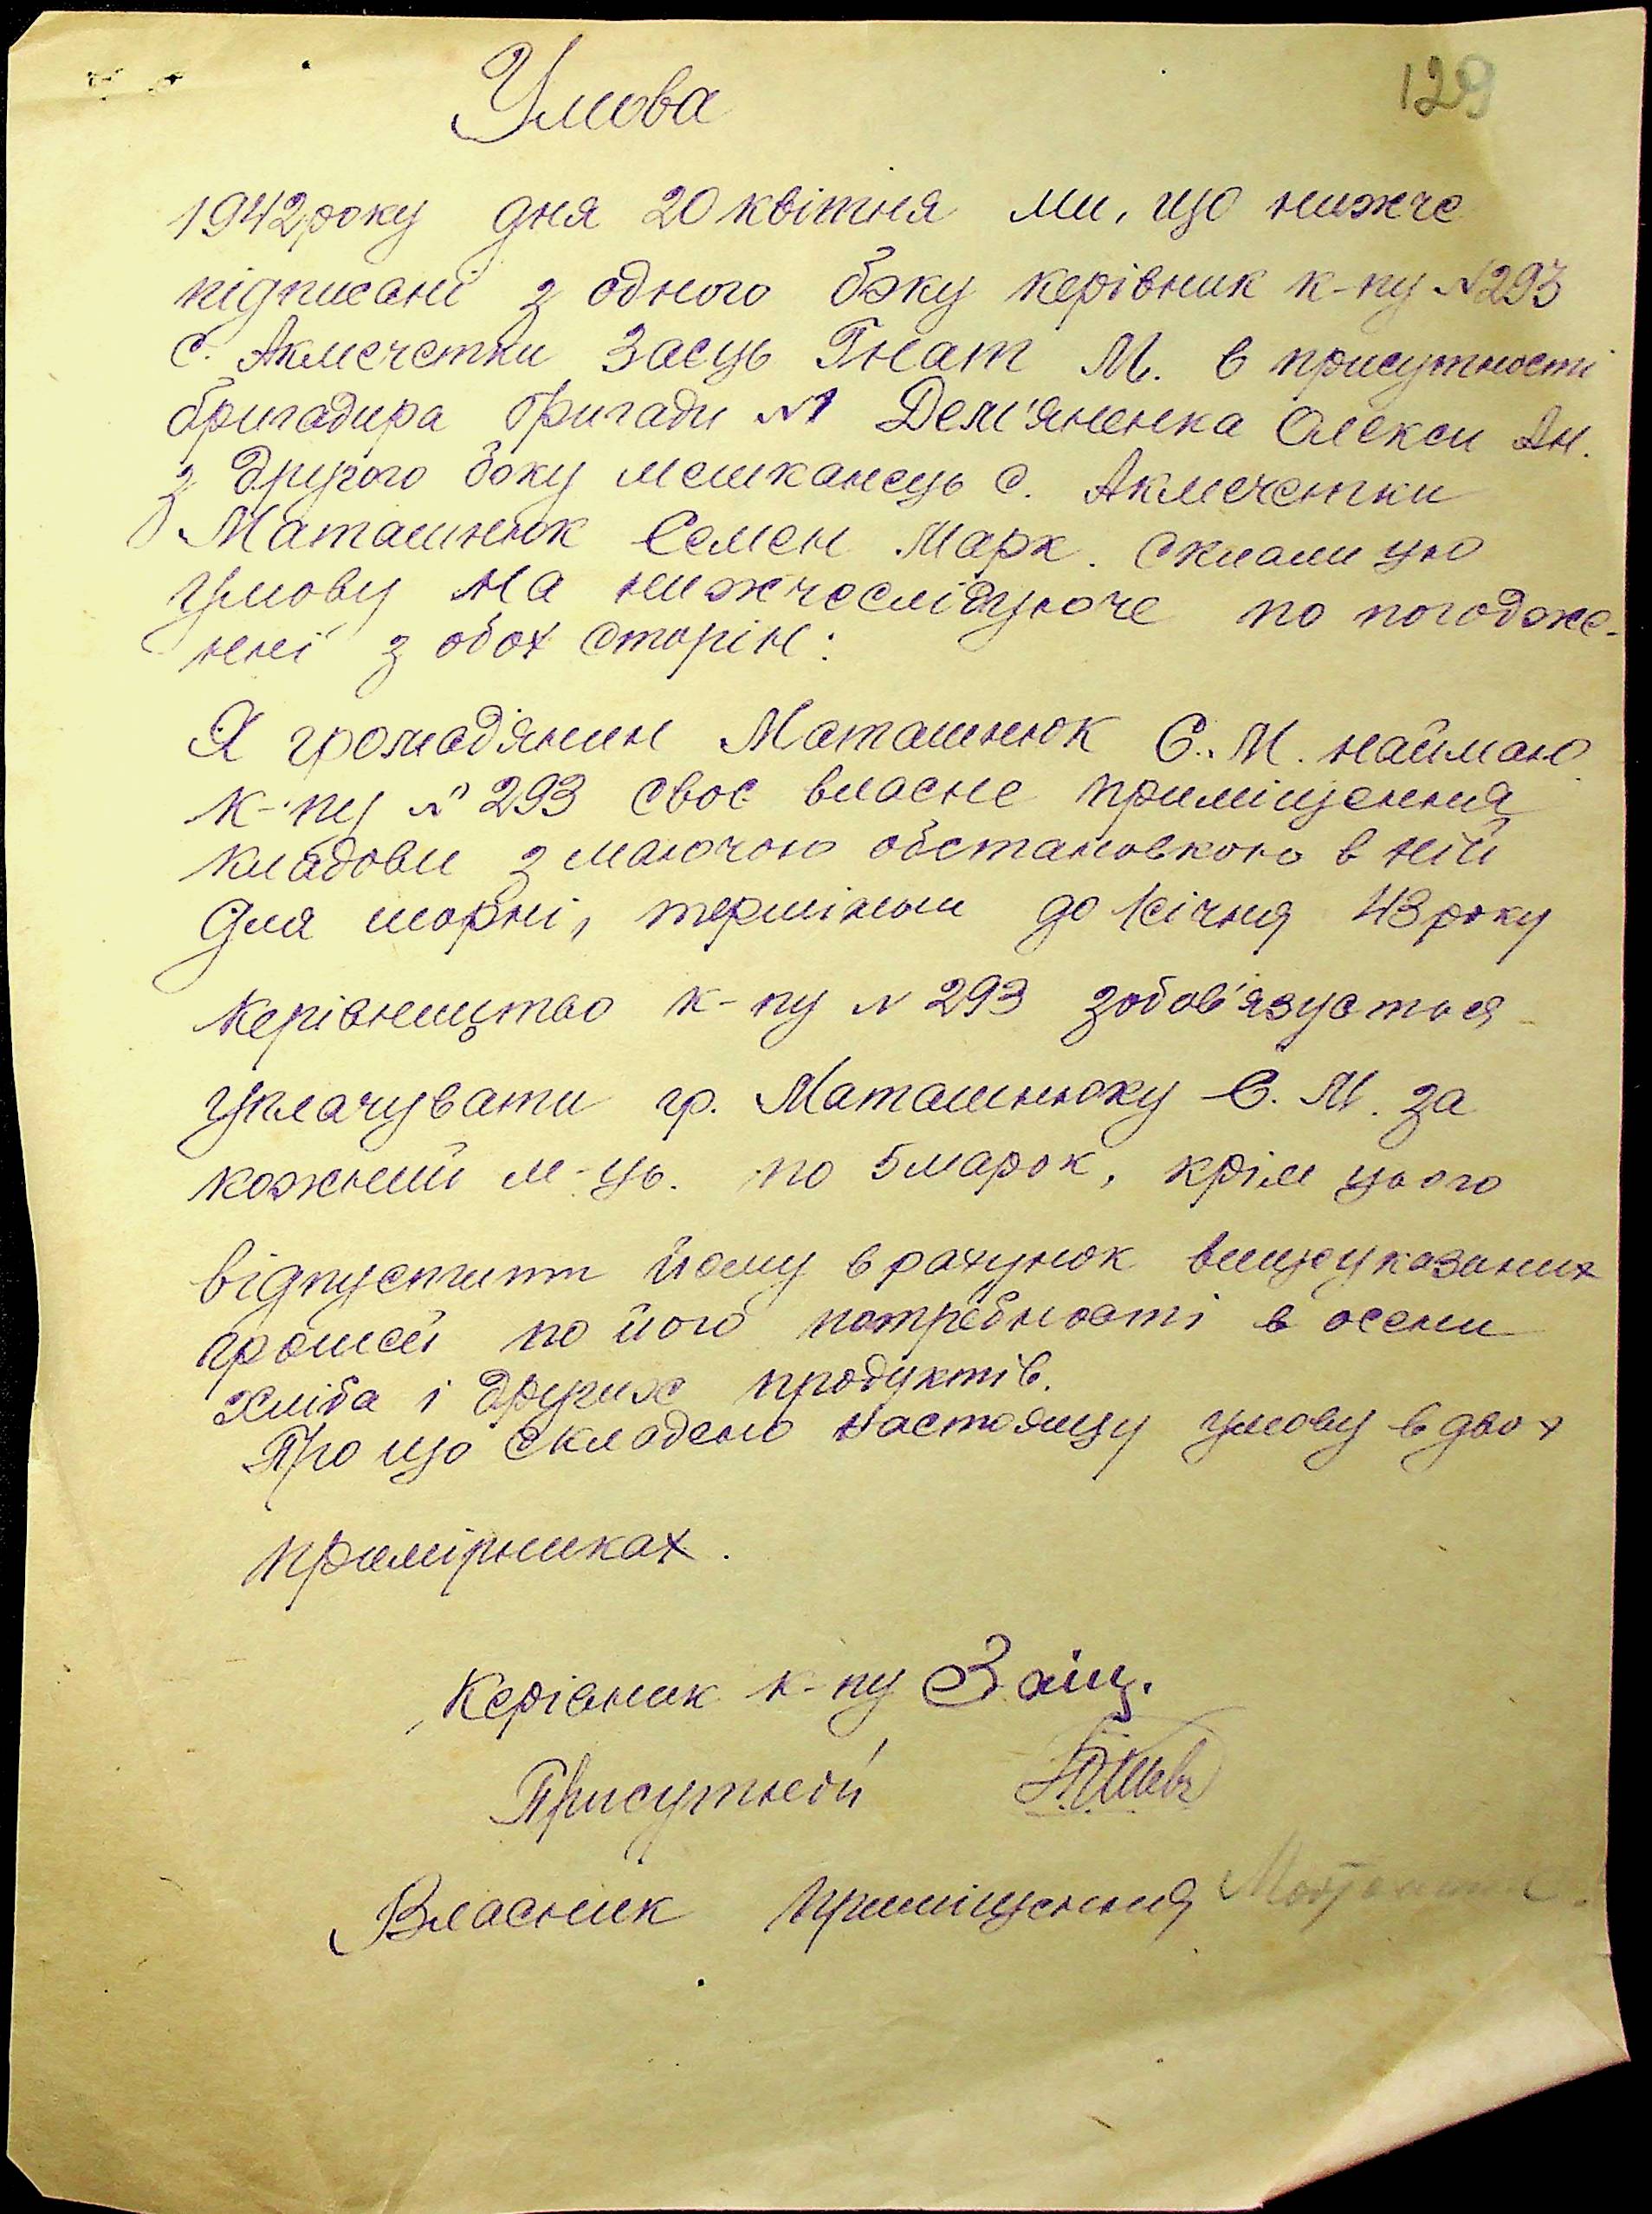 129
Умова
1942 року дня 20 квітня ми, що нижче
підписані з одного боку керівник к-пу №293
с. Акмечетки Заєць Гнат М. в присутності
бригадира бригади №1 Дем'яненка Олекси Ян.
з другого боку мешканець с. Акмечетки
Маташнюк Семен Марк. склали цю
умову на нижчеслідуюче по погодже-
нні з обох сторін:
Я громадянин Маташнюк С. М. наймаю
к-пу №293 своє власне приміщення
кладови з маючою обстановкою в ній
для шорні, терміном до 1 січня 43 року
Керівництво к-пу №293 зобов'язується
уплачувати гр. Маташнюку С. М. за
кожний м-ць. по 5 марок, крім цього
відпустити йому в рахунок вищеуказаних
грошей по його потребності в осени
хліба і других продуктів.
Про що складено настоящу умову в двох
примірниках.
Керівник к-пу Заїц.
Присутній
Власник приміщення